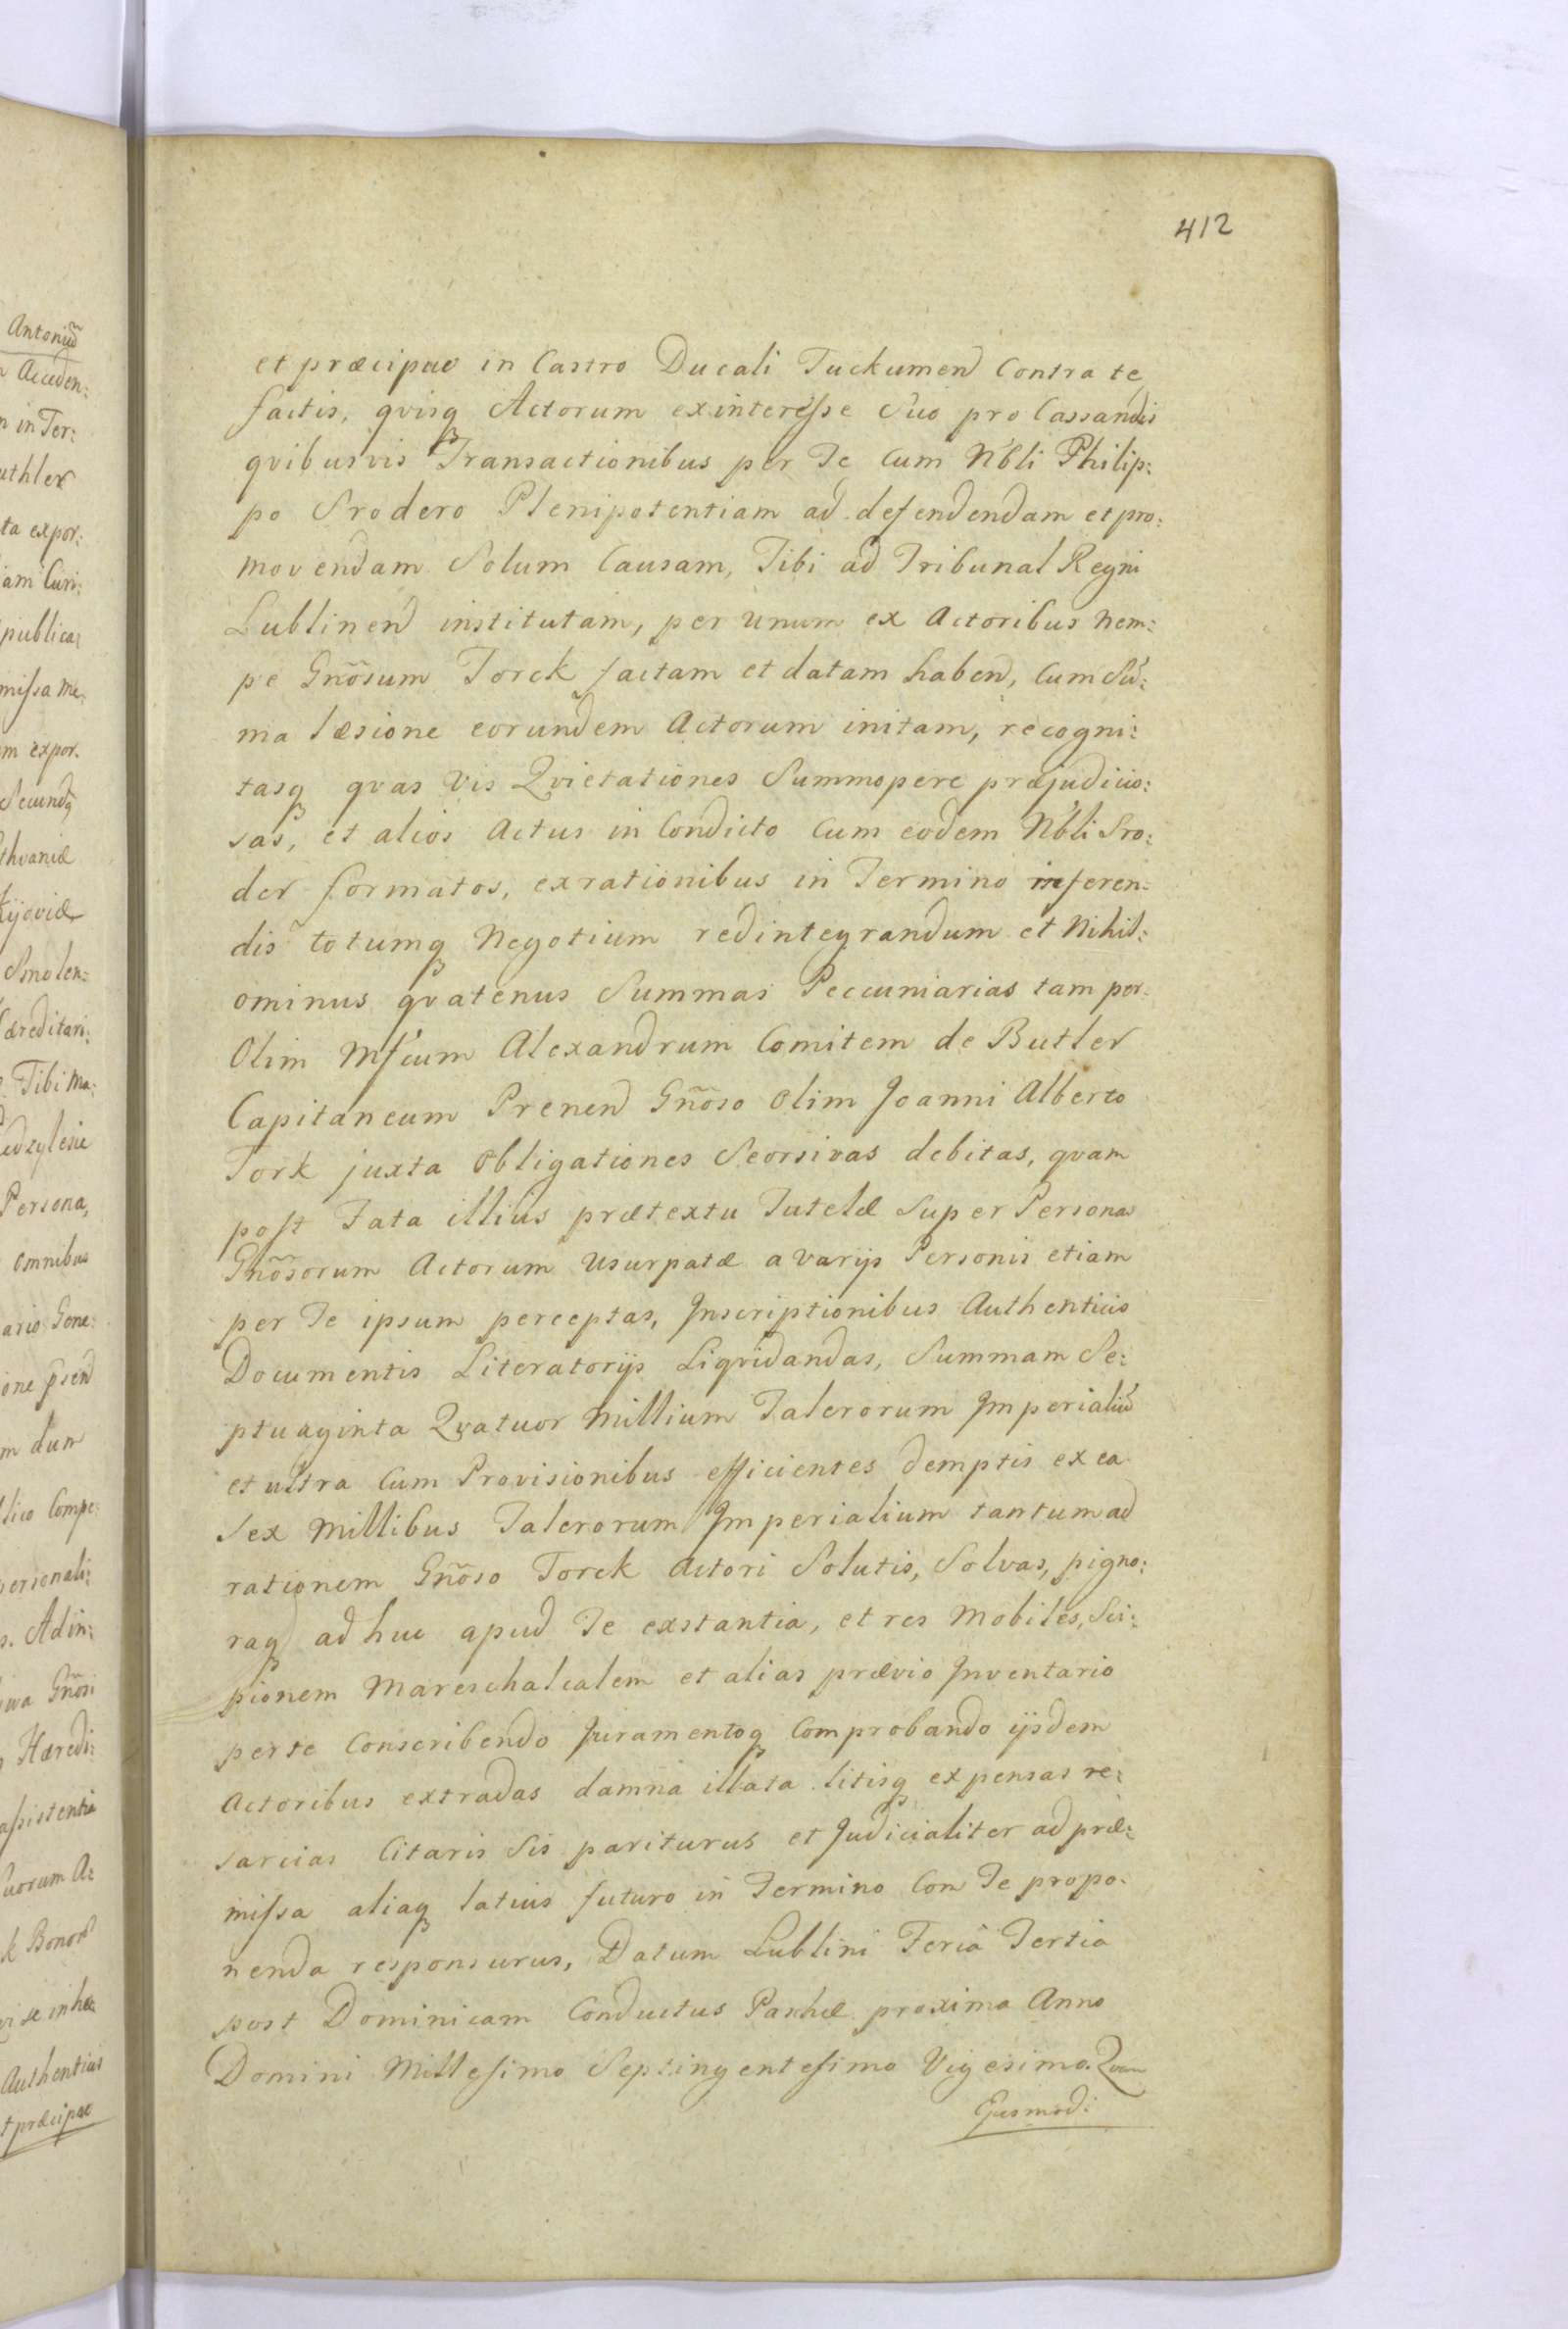 412
et præcipue in Castro Ducali Tuckumen͠ Contra te
factis, qvisq Actorum ex interesse Suo pro Cassandis
qvibusvis Transactionibus per Te Cum Nbli Philip:
po Srodero Plenipotentiam ad defendendam et pro:
movendam Solum Causam, Tibi ad Tribunal Regni
Lublinen͠ institutam, per unum ex Actoribus nem:
pe Gnõsum Torck factam et datam haben͠, Cum Su͠:
ma læsione eorundem Actorum initam, recogni:
tasq qvas vis Qvietationes Summopere præjudicio:
sas, et alios Actus in Condicto Cum eodem Nbli Sro:
der formatos, ex rationibus in Termino inferen:
dis totumq Negotium redintegrandum et Nihil:
ominus qvatenus Summas Peccuniarias tam per
Olim Mfcum Alexandrum Comitem de Butler
Capitaneum Prenen͠ Gnõso Olim Joanni Alberto
Tork juxta Obligationes Seorsivas debitas, qvam
post Fata illius prætextu Tutelæ Super Personas
Gnõsorum Actorum Usurpatæ a varijs Personis etiam
per Te ipsum perceptas, Inscriptionibus Authenticis
Documentis Literatorijs Liqvidandas, Summam Se:
ptuaginta Qvatuor Millium Talerorum Imperialiu͠
et ultra Cum Provisionibus efficientes demptis ex ea
Sex Millibus Talerorum Imperialium tantum ad
rationem Gnõso Torck Actori Solutis, Solvas, pigno:
raq ad huc apud Te exstantia, et res Mobiles, Sci:
pionem Mareschalcalem et alias prævio Inventario
per te Conscribendo Juramentoq Comprobando ijsdem
Actoribus extradas damna illata litisq expensas re:
sarcias Citaris Sis pariturus et Judicialiter ad præ:
missa aliaq latius futuro in Termino Con Te propo:
nenda responsurus, Datum Lublini Feriâ Tertia
post Dominicam Conductus Paschæ proxima Anno
Domini Millesimo Septingentesimo Vigesimo. Qvam
Ejusmodi